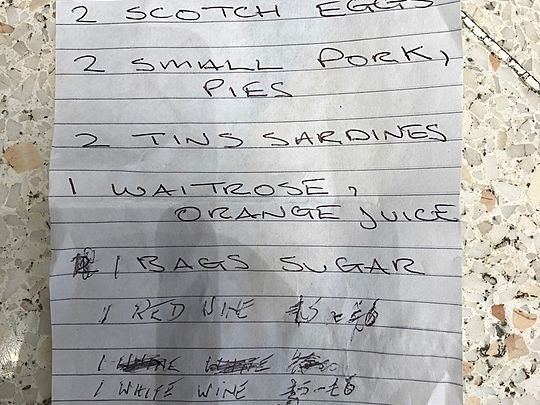 2 SCOTCH EGGS
2 SMALL PORK,
PIES
2 TINS SARDINES
1 WAITROSE,
ORANGE JUICE
1 BAGS SUGAR
1 RED WINE £5-£6
1
1 WHITE WINE £5-£6